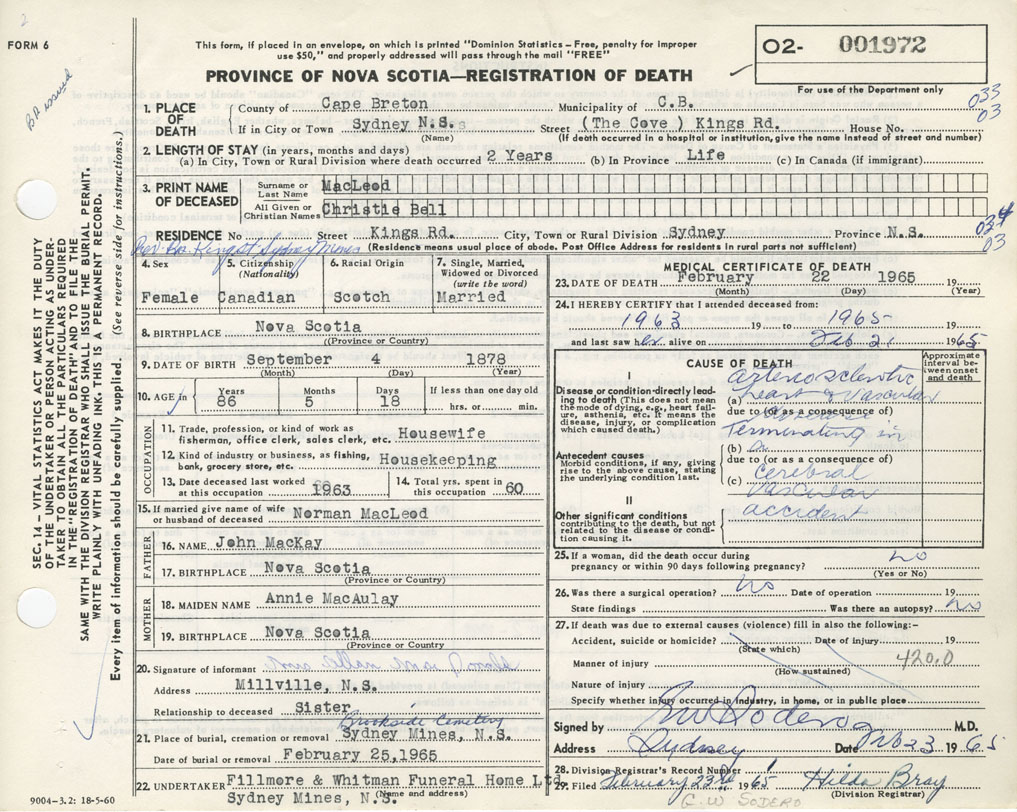 2
FORM 6
B.A. issued
This form, if placed in an envelope, on which is printed "Dominion Statistics – Free, penalty for improper
use $50," and properly addressed will pass through the mail "FREE"
PROVINCE OF NOVA SCOTIA—REGISTRATION OF DEATH
O2- 001972
For use of the Department only
033
03
1. PLACE OF DEATH County of Cape Breton Municipality of C.B.
If in City or Town Sydney N.S. Street (The Cove ) Kings Rd. House No.
(Name) (If death occurred in a hospital or institution, give the name instead of street and number)
2. LENGTH OF STAY (in years, months and days)
(a) In City, Town or Rural Division where death occurred 2 Years (b) In Province Life (c) In Canada (if immigrant)
3. PRINT NAME OF DECEASED Surname or Last Name MacLeod
All Given or Christian Names Christie Bell
034
03
RESIDENCE No Street Kings Rd. City, Town or Rural Division Sydney Province N.S.
(Residence means usual place of abode. Post Office Address for residents in rural parts not sufficient)
Sydney Mines
4. Sex Female
5. Citizenship (Nationality) Canadian
6. Racial Origin Scotch
7. Single, Married, Widowed or Divorced (write the word) Married
8. BIRTHPLACE Nova Scotia
(Province or Country)
9. DATE OF BIRTH September 4 1878
(Month) (Day) (Year)
10. AGE in Years 86 Months 5 Days 18 If less than one day old hrs. or min.
OCCUPATION
11. Trade, profession, or kind of work as fisherman, office clerk, sales clerk, etc. Housewife
12. Kind of industry or business, as fishing, bank, grocery store, etc. Housekeeping
13. Date deceased last worked at this occupation 1963
14. Total yrs. spent in this occupation 60
15. If married give name of wife or husband of deceased Norman MacLeod
FATHER
16. NAME John MacKay
17. BIRTHPLACE Nova Scotia
(Province or Country)
MOTHER
18. MAIDEN NAME Annie MacAulay
19. BIRTHPLACE Nova Scotia
(Province or Country)
20. Signature of informant Mrs Allan MacDonald
Address Millville, N.S.
Relationship to deceased Sister
Brookside Cemetery
21. Place of burial, cremation or removal Sydney Mines, N.S.
Date of burial or removal February 25,1965
22. UNDERTAKER Fillmore & Whitman Funeral Home Ltd
Sydney Mines, N.S.
(Name and address)
MEDICAL CERTIFICATE OF DEATH
23. DATE OF DEATH February 22 1965 19
(Month) (Day) (Year)
24. I HEREBY CERTIFY that I attended deceased from:
1963 19 to 1965 19
and last saw her alive on Feb 21 1965
CAUSE OF DEATH
Approximate interval between onset and death
I
Disease or condition directly leading to death (This does not mean the mode of dying, e.g., heart failure, asthenia, etc. It means the disease, injury, or complication which caused death.)
Arteriosclerotic
(a) heart & Vascular
due to (or as a consequence of)
Terminating in
(b)
Antecedent causes
Morbid conditions, if any, giving rise to the above cause, stating the underlying condition last.
due to (or as a consequence of)
(c) Cerebral
Vascular
accident
II
Other significant conditions
contributing to the death, but not related to the disease or condition causing it.
25. If a woman, did the death occur during
pregnancy or within 90 days following pregnancy? No
(Yes or No)
26. Was there a surgical operation? No Date of operation 19
State findings Was there an autopsy? No
27. If death was due to external causes (violence) fill in also the following:–
Accident, suicide or homicide? Date of injury 19
(State which)
420.0
Manner of injury
(How sustained)
Nature of injury
Specify whether injury occurred in industry, in home, or in public place
Signed by GW Sodero M.D.
Address Sydney Date Feb 23 1965
28. Division Registrar's Record Number
29. Filed February 23rd 1965 Hilda Bray
(Division Registrar)
G.W SODERO
SEC. 14 – VITAL STATISTICS ACT MAKES IT THE DUTY
OF THE UNDERTAKER OR PERSON ACTING AS UNDER-
TAKER TO OBTAIN ALL THE PARTICULARS REQUIRED
IN THE "REGISTRATION OF DEATH" AND TO FILE THE
SAME WITH THE DIVISION REGISTRAR WHO SHALL ISSUE THE BURIAL PERMIT.
WRITE PLAINLY WITH UNFADING INK. THIS IS A PERMANENT RECORD.
Every item of information should be carefully supplied. (See reverse side for instructions.)
9004–3.2: 18-5-60